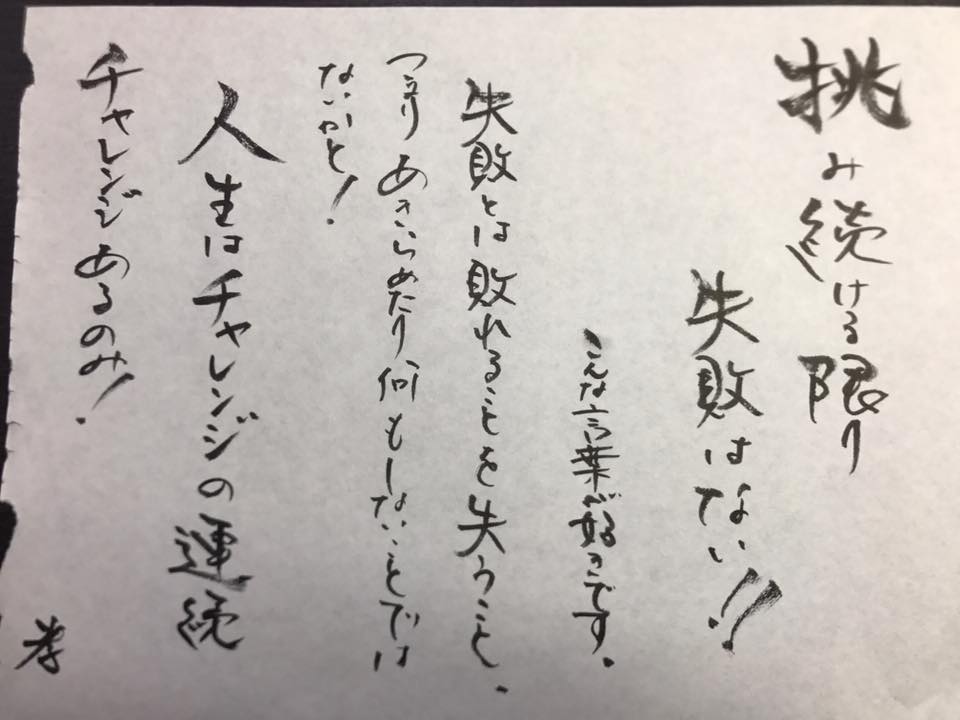 挑み続ける限り
失敗はない!!
こんな言葉が好きです。
失敗とは敗れることを失うこと、
つまり あきらめたり、何もしないことでは
ないかと!
人生はチャレンジの運続
チャレンジあるのみ!